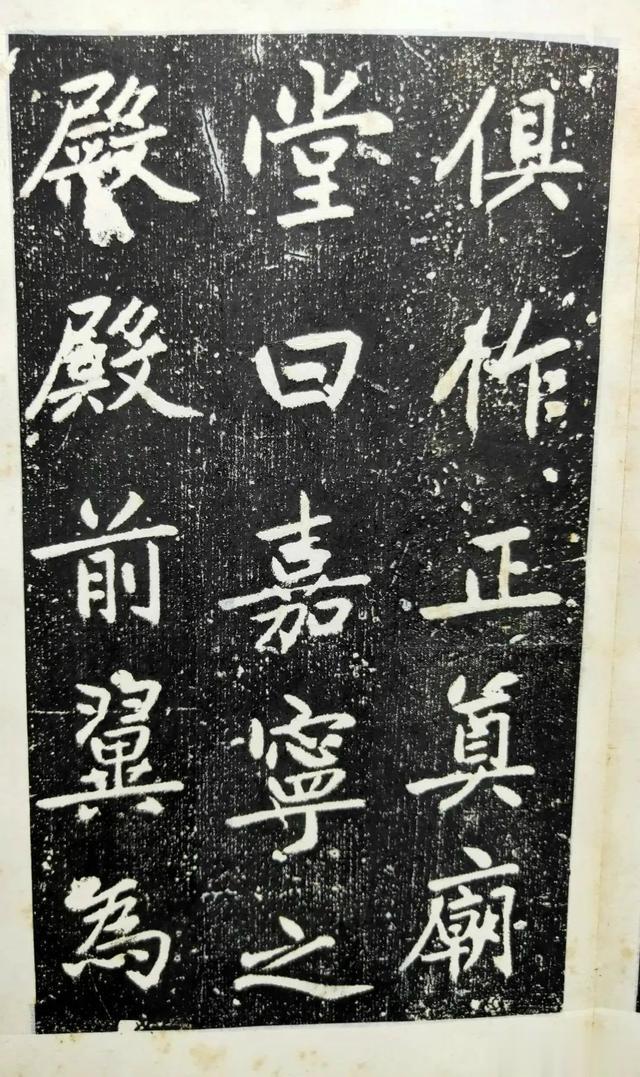 俱柞正真廟
堂曰嘉寧之
殿殿前翼為